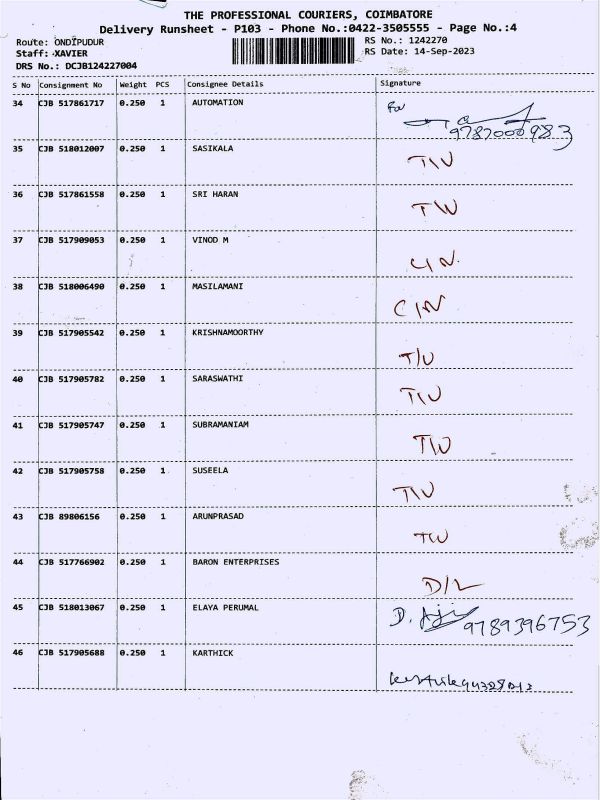 THE PROFESSIONAL COURIERS, COIMBATORE
Delivery Runsheet - P103 - Phone No.:0422-3505555 - Page No.:4
Route: ONDIPUDUR
RS No.: 1242270
Staff: XAVIER
RS Date: 14-Sep-2023
DRS No.: DCJB124227004
S No Consignment No Weight PCS Consignee Details Signature
34 CJB 517861717 0.250 1 AUTOMATION
9787000983
35 CJB 518012007 0.250 1 SASIKALA T/W
36 CJB 517861558 0.250 1 SRI HARAN T/W
37 CJB 517909053 0.250 1 VINOD M C/N
38 CJB 518006490 0.250 1 MASILAMANI C/N
39 CJB 517905542 0.250 1 KRISHNAMOORTHY T/W
40 CJB 517905782 0.250 1 SARASWATHI T/W
41 CJB 517905747 0.250 1 SUBRAMANIAM T/W
42 CJB 517905758 0.250 1 SUSEELA T/W
43 CJB 89806156 0.250 1 ARUNPRASAD T/W
44 CJB 517766902 0.250 1 BARON ENTERPRISES D/L
45 CJB 518013067 0.250 1 ELAYA PERUMAL D.
9789396753
46 CJB 517905688 0.250 1 KARTHICK